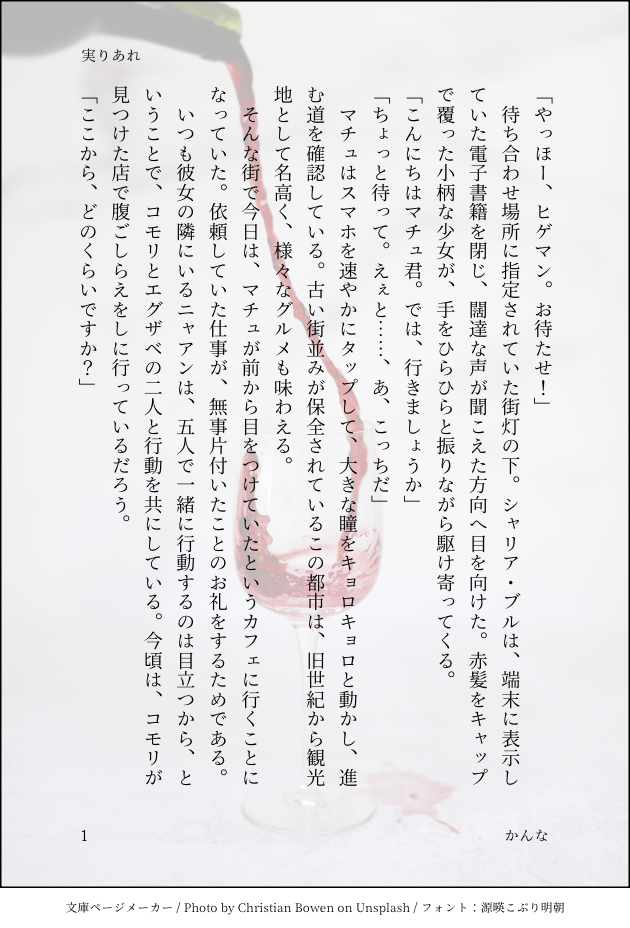 実りあれ
「やっほー、ヒゲマン。お待たせ！」
　待ち合わせ場所に指定されていた街灯の下。シャリア・ブルは、端末に表示し
ていた電子書籍を閉じ、闊達な声が聞こえた方向へ目を向けた。赤髪をキャップ
で覆った小柄な少女が、手をひらひらと振りながら駆け寄ってくる。
「こんにちはマチュ君。では、行きましょうか」
「ちょっと待って。えぇと……、あ、こっちだ」
　マチュはスマホを速やかにタップして、大きな瞳をキョロキョロと動かし、進
む道を確認している。古い街並みが保全されているこの都市は、旧世紀から観光
地として名高く、様々なグルメも味わえる。
　そんな街で今日は、マチュが前から目をつけていたというカフェに行くことに
なっていた。依頼していた仕事が、無事片付いたことのお礼をするためである。
　いつも彼女の隣にいるニャアンは、五人で一緒に行動するのは目立つから、と
いうことで、コモリとエグザベの二人と行動を共にしている。今頃は、コモリが
見つけた店で腹ごしらえをしに行っているだろう。
「ここから、どのくらいですか？」
かんな
1
文庫ページメーカー / Photo by Christian Bowen on Unsplash / フォント：源暎こぶり明朝